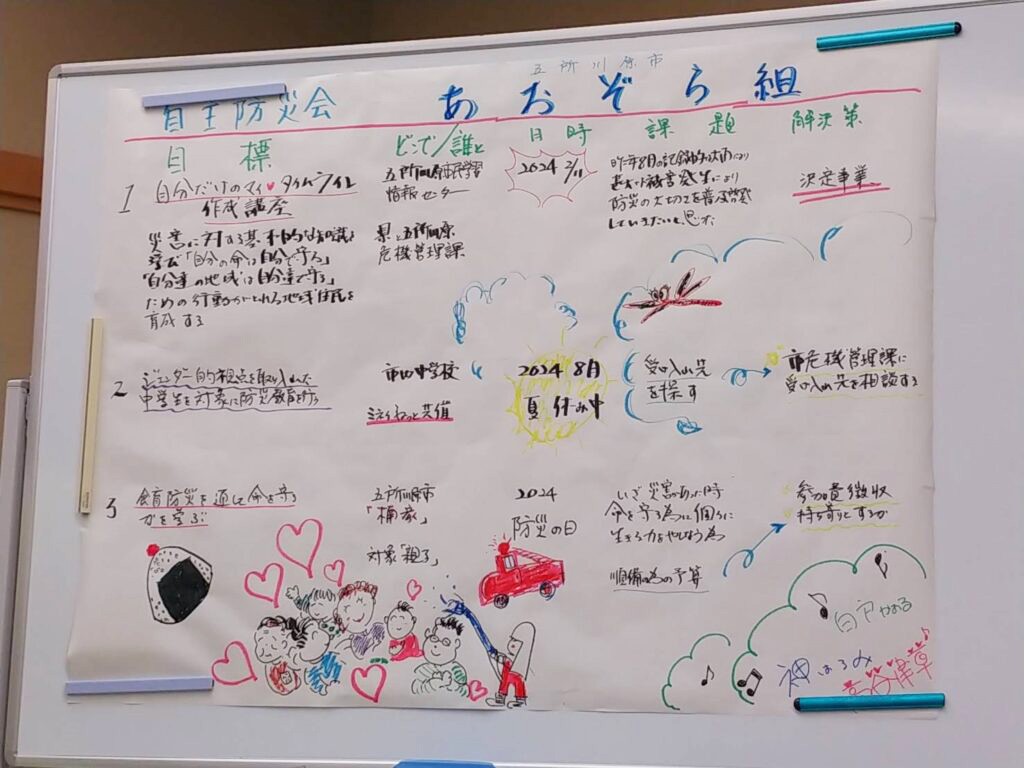 五所川原市
自主防災会 あおぞら組
目標 どこで/誰と 日時 課題 解決策
1 自分だけのマイ♥タイムライン
作成講座
災害に対する基本的な知識を
学び「自分の命は自分で守る」
「自分達の地域は自分達で守る」
ための行動がとれる地域住民を
育成する
五所川原市民学習
情報センター
県と五所川原
危機管理課
2024 2/11
昨年8月の記録的な大雨により
甚大な被害発生により
防災の大切さを普及啓発
していきたいと思った
決定事業
2 ジェンダー的視点を取り入れた
中学生を対象に防災教育を行う
市内中学校
共催
2024 8月
夏休み中
受け入れ先
を探す
市危機管理課に
受け入れ先を相談する
3 食育防災を通して命を守る
力を学ぶ
五所川原市
「楠家」
対象「親子」
2024
防災の日
いざ災害があった時
命を守る為に個々に
生きる力をやしなう為
準備の為の予算
参加費徴収
持ち寄りとするか
神 はるみ